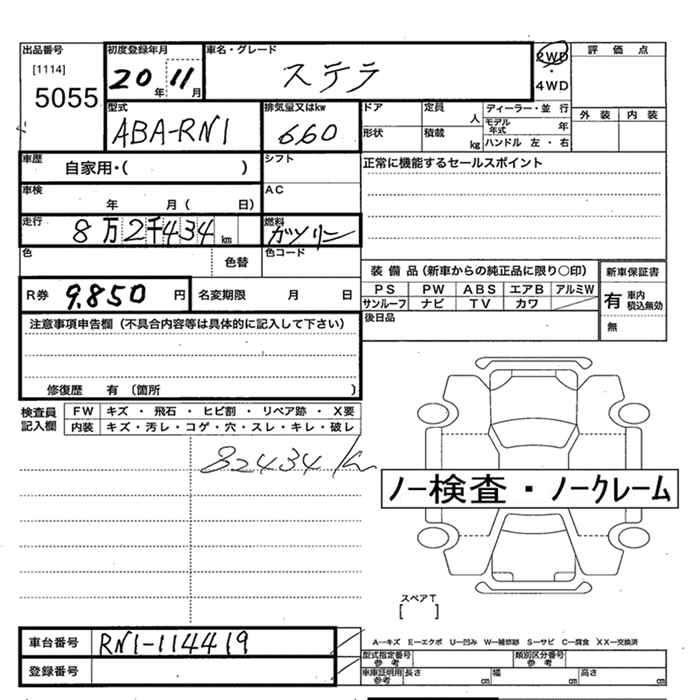 出品番号 初度登録年月 車名・グレード 2WD 評価点
[1114] 20年 11月 ステラ ・
5055 4WD
型式 排気量又はkw ドア 定員 人 ディーラー・並行 外装 内装
ABA-RN1 660 形状 積載 kg モデル年式 年
ハンドル 左・右
車歴 自家用・( ) シフト 正常に機能するセールスポイント
車検 年 月( 日) AC
走行 8万2千434km 燃料 ガソリン
色 色替 色コード 装備品(新車からの純正品に限り○印) 新車保証書
R券 9,850円 名変期限 月 日 PS PW ABS エアB アルミW 有 車内積込無効
サンルーフ ナビ TV カワ 無
注意事項申告欄(不具合内容等は具体的に記入して下さい) 後日品
修復歴 有 (箇所 )
検査員記入欄 FW キズ・飛石・ヒビ割・リペア跡・X要
内装 キズ・汚レ・コゲ・穴・スレ・キレ・破レ
82434km
ノー検査・ノークレーム
スペアT
[ ]
車台番号 RN1-114419 A―キズ E―エクボ U―凹み W―補修跡 S―サビ C―腐食 XX―交換済
登録番号 型式指定番号 参考 類別区分番号 参考
車庫証明用 参考 長さ cm 幅 cm 高さ cm